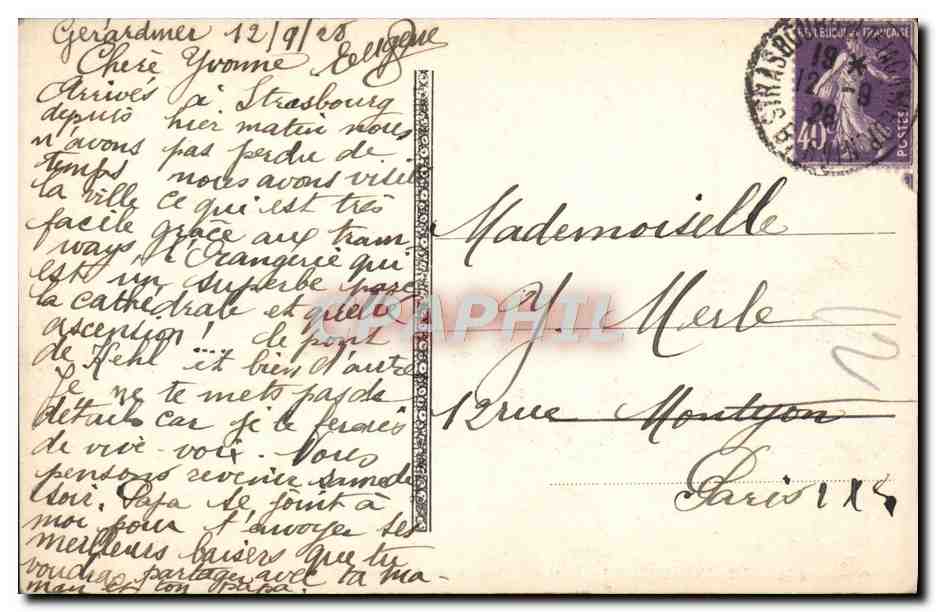 Gérardmer 12/9/28
Chère Yvonne
Arrives à Strasbourg
depuis hier matin nous
n'avons pas perdu de
temps nous avons visité
la ville ce qui est très
facile grâce aux tram
ways, l'Orangerie qui
est un superbe parc
la cathédrale et quelle
ascention! le pont
de Kehl .... et bien d'autre
Je ne te mets pas de
details car je le ferais
de vive-voix. Nous
pensons revenir samedi
soir. Papa se joint à
moi pour t'envoyer ses
meilleurs baisers que tu
voudras partager avec ta ma-
man et ton papa.
REPUBLIQUE FRANÇAISE
40c
POSTES
STRASBOURG
19 *
12 - 9
28
Mademoiselle
Y. Merle
12 rue Montyon
Paris IX
CPAPHIL